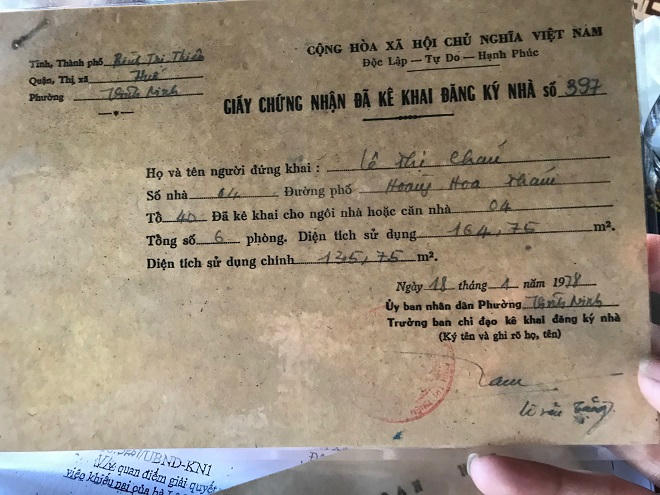 CỘNG HÒA XÃ HỘI CHỦ NGHĨA VIỆT NAM
Độc Lập — Tự Do — Hạnh Phúc
Tỉnh, Thành phố Bình Trị Thiên
Quận, Thị xã Huế
Phường Vĩnh Ninh
GIẤY CHỨNG NHẬN ĐÃ KÊ KHAI ĐĂNG KÝ NHÀ SỐ 397
Họ và tên người đứng khai : Lê Thị Châu
Số nhà 04 Đường phố Hoàng Hoa Thám
Tổ 4D Đã kê khai cho ngôi nhà hoặc căn nhà 04
Tổng số 6 phòng. Diện tích sử dụng 164,75 m².
Diện tích sử dụng chính 135,75 m².
Ngày 18 tháng 4 năm 1978
Ủy ban nhân dân Phường Vĩnh Ninh
Trưởng ban chỉ đạo kê khai đăng ký nhà
(Ký tên và ghi rõ họ, tên)
/UBND-KN1
V/v quan điểm giải quyết
việc khiếu nại của bà